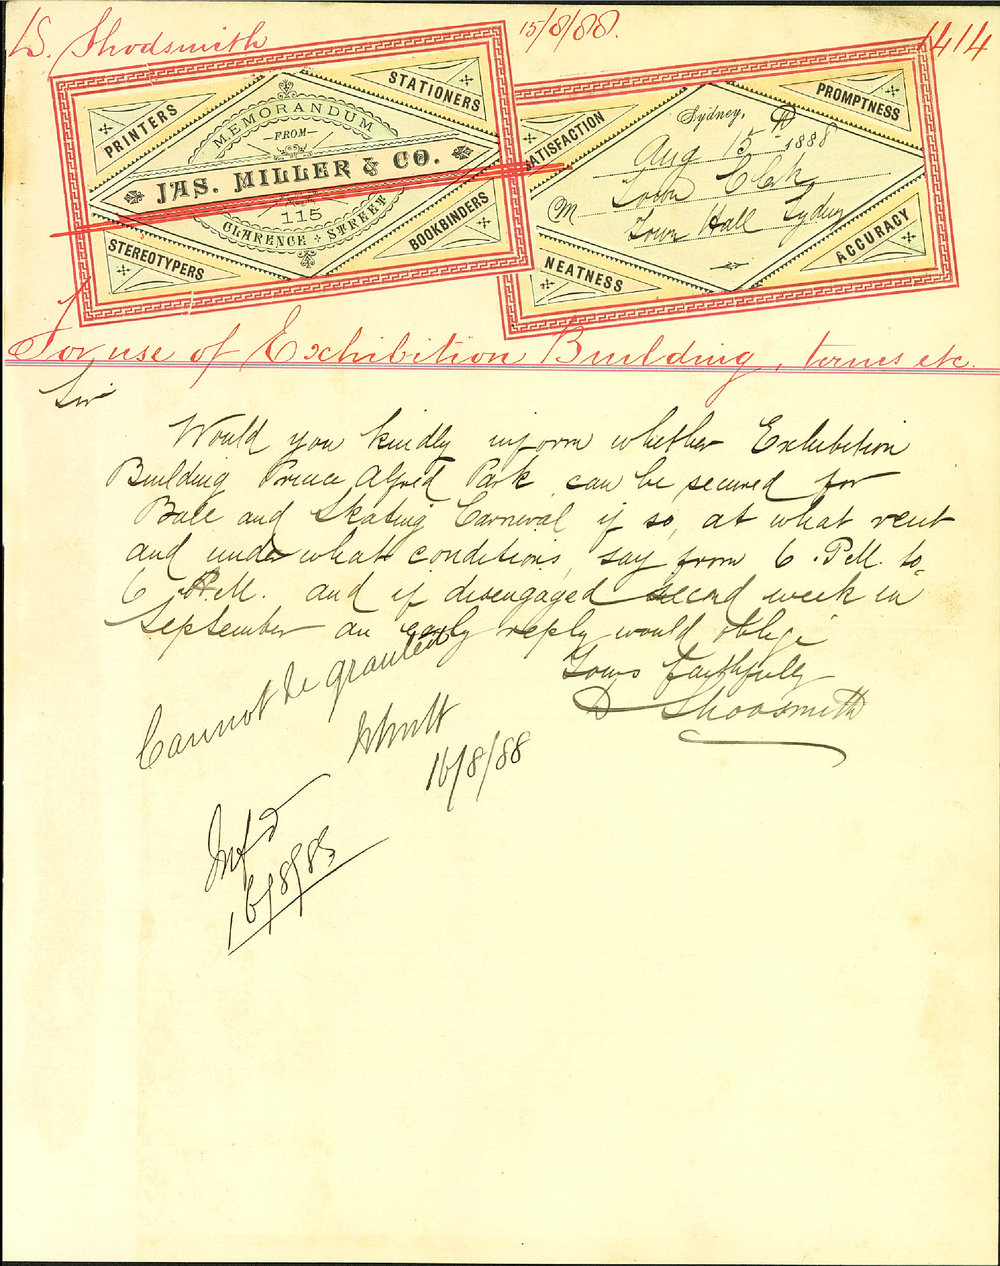 D. Shodsmith 15/8/88. 1414
PRINTERS
STATIONERS
MEMORANDUM
FROM
JAS. MILLER & CO.
115
CLARENCE STREET
STEREOTYPERS
BOOKBINDERS
SATISFACTION
PROMPTNESS
Sydney, Aug 15th 1888
M Town Clerk
Town Hall Sydney
NEATNESS
ACCURACY
For use of Exhibition Building, terms etc.
Sir
Would you kindly inform whether Exhibition
Building Prince Alfred Park can be secured for
Ball and Skating Carnival, if so, at what rent
and under what conditions, say from 6 P.M. to
6 A.M. and if disengaged second week in
September an early reply would oblige
Yours faithfully
D Shodsmith
Cannot be granted
16/8/88
Infd
16/8/88